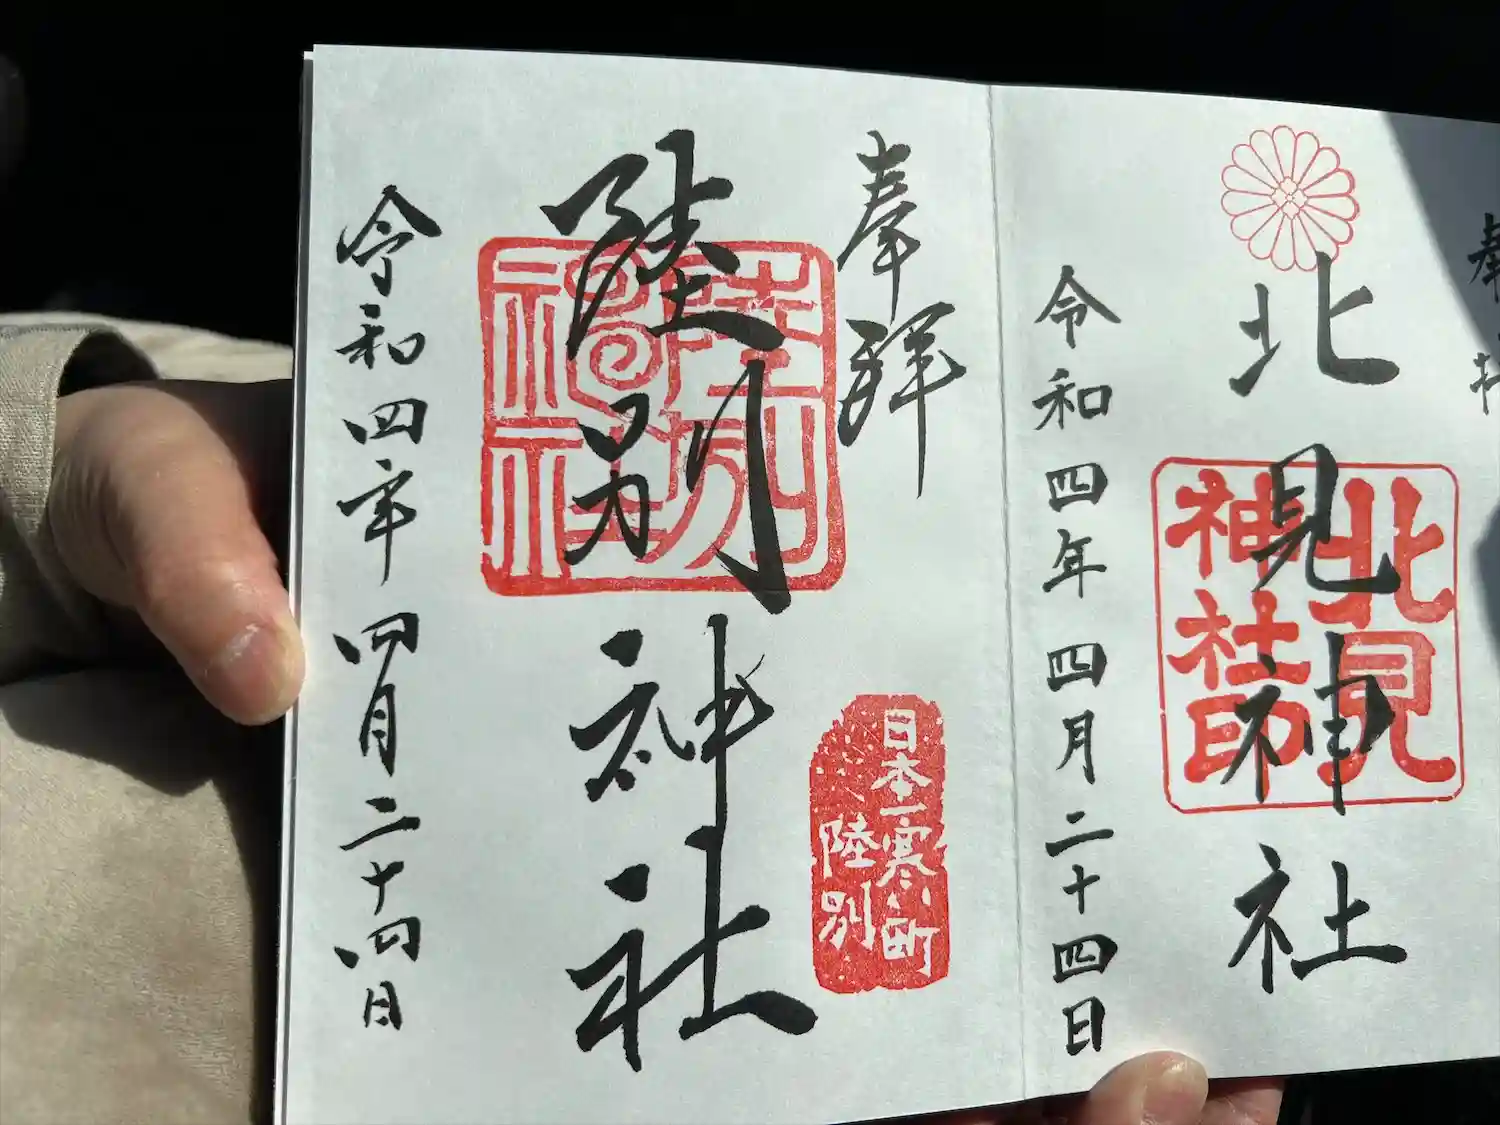 奉拝
北見神社
北見
神社印
令和四年四月二十四日
奉拝
陸別神社
陸別
神社
日本一寒い町
陸別
令和四年四月二十四日